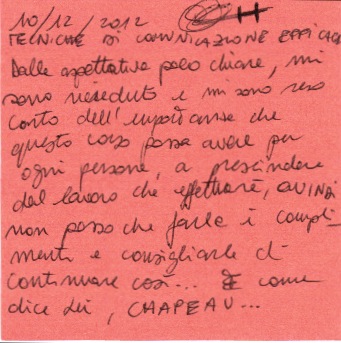 10/12/2012
TECNICHE DI COMUNICAZIONE EFFICACE
Dalle aspettative poco chiare, mi
sono ricreduto e mi sono reso
conto dell'importanza che
questo corso possa avere per
ogni persona, a prescindere
dal lavoro che effettuare, QUINDI
non posso che farle i compli-
menti e consigliarle di
continuare così... E come
dice lei, CHAPEAU...